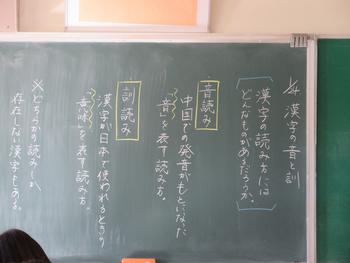 1/4 漢字の音と訓
漢字の読み方には
どんなものがあるだろうか。
音読み
中国での発音がもとになった
「音」を表す読み方。
訓読み
漢字が日本で使われるときの
「意味」を表す読み方。
※どちらかの読みしか
存在しない漢字もある。